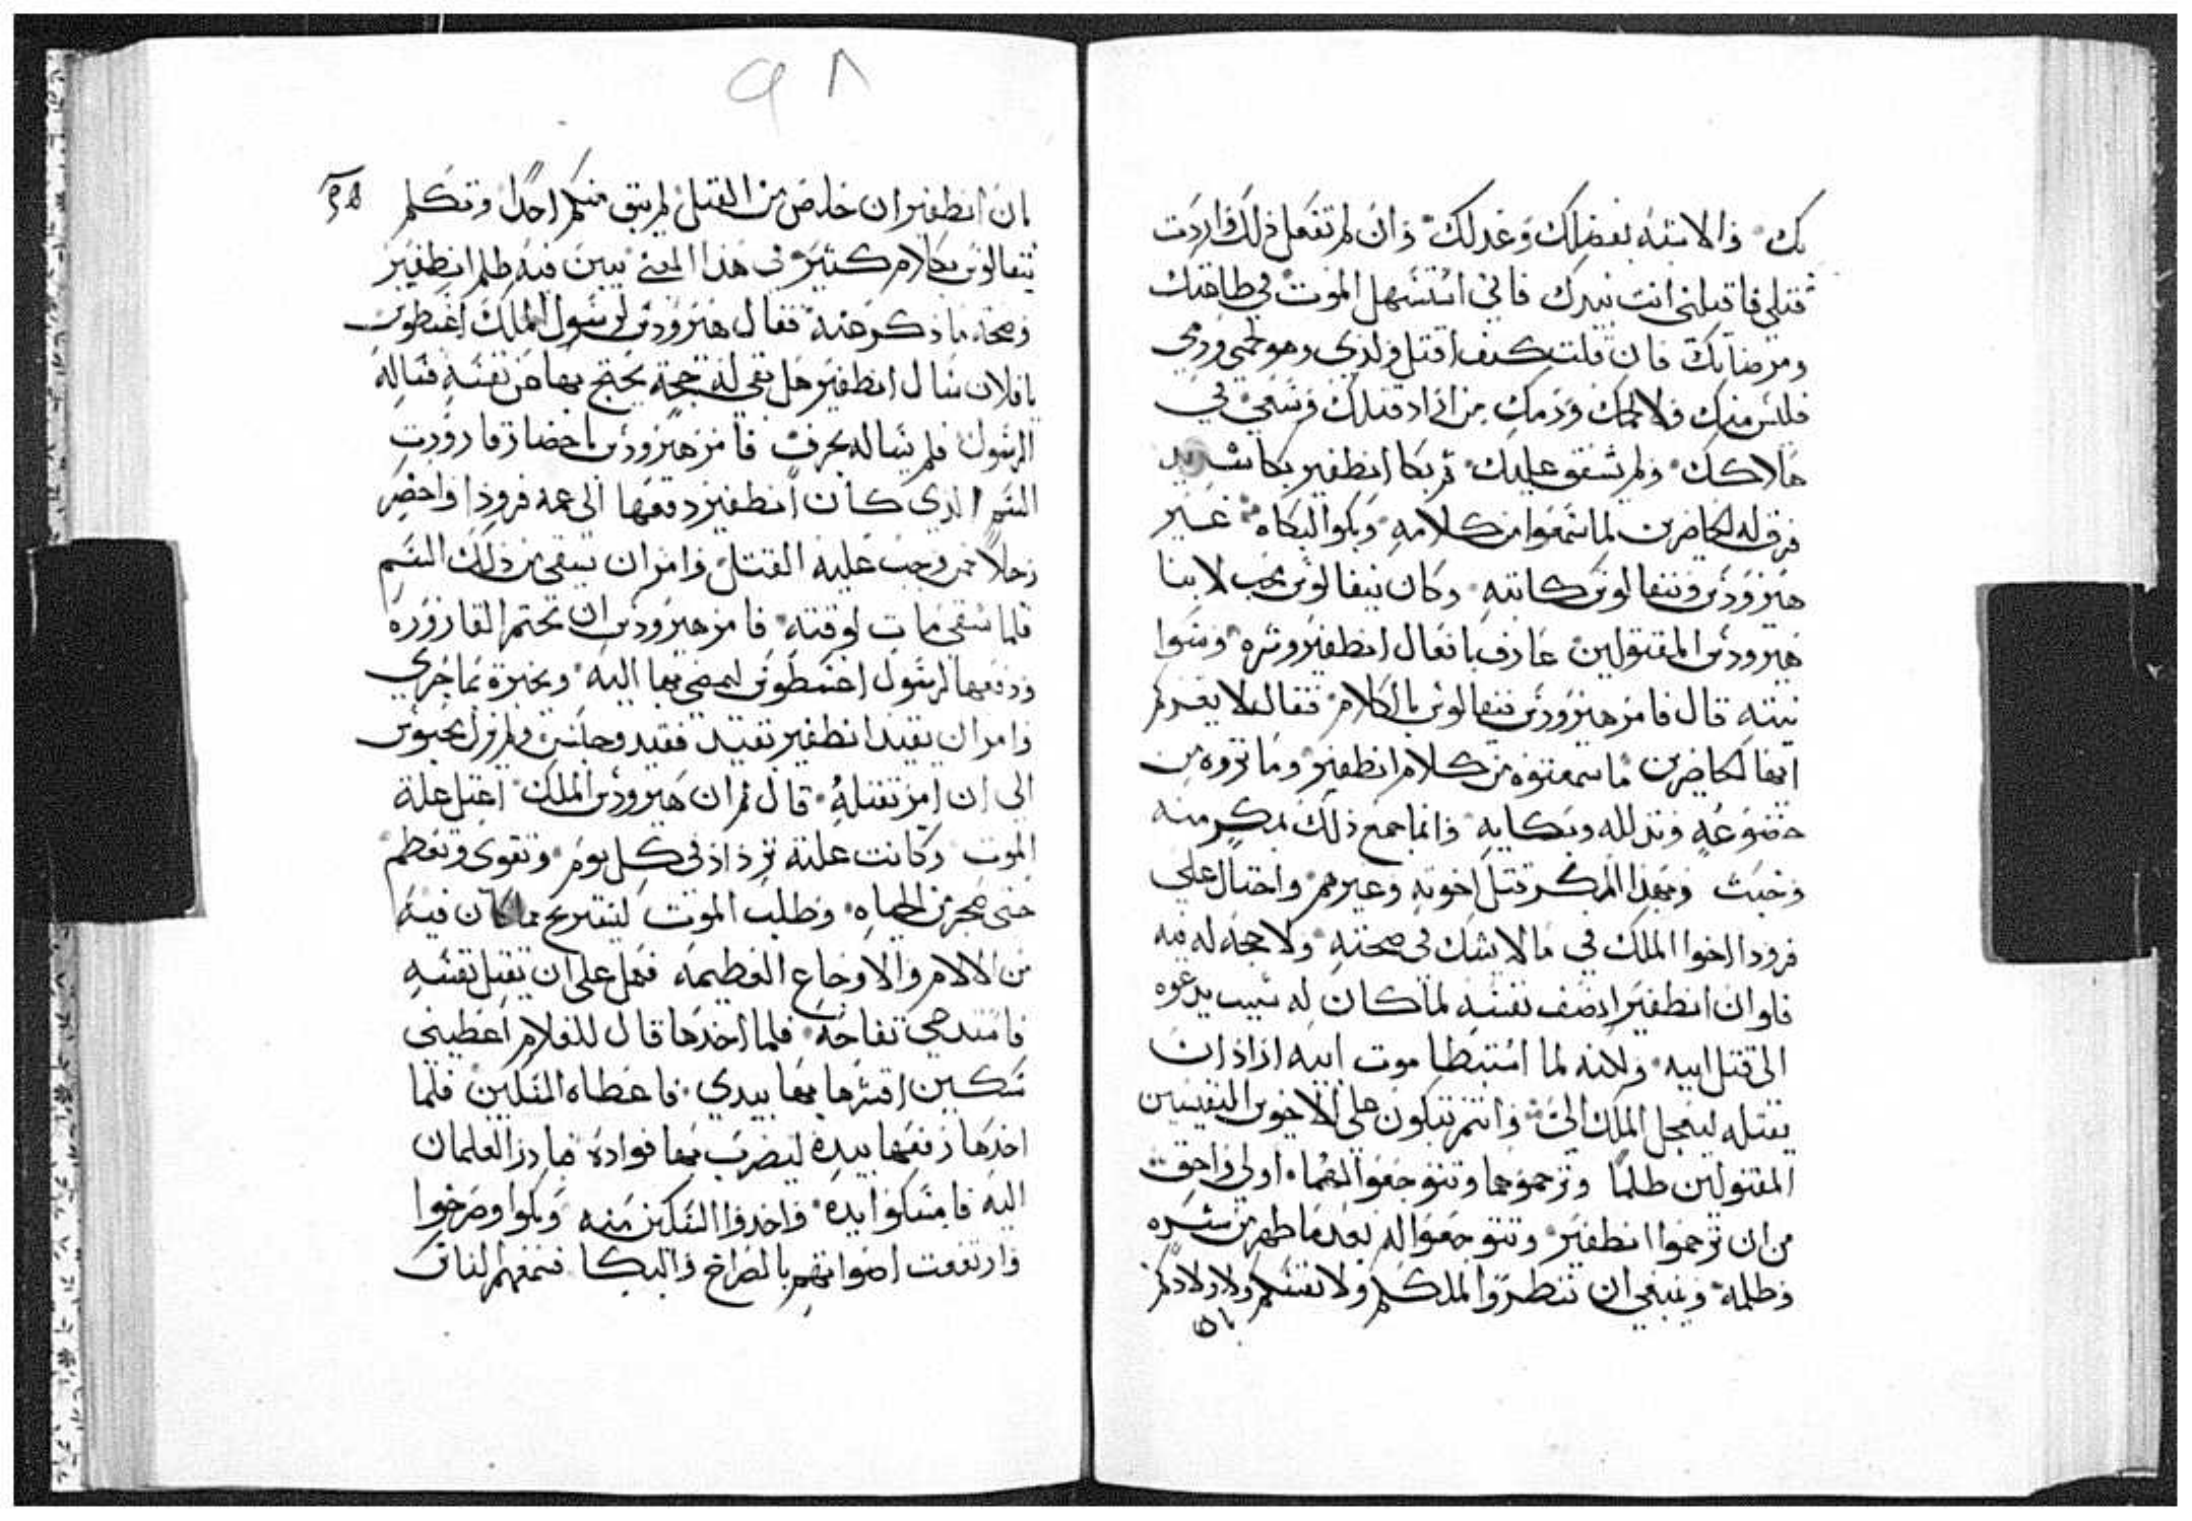 بك والابقه بفضلك وعدلك وان لم تفعل ذلك واردت
قتلي فاقتلني انت بيدك فاني استسهل الموت في طاعتك
ومرضاتك فان قلت كيف اقتل ولدي وهو لحمي ودمي
فليس منك ولا لحمك ودمك من اراد قتلك وسعي في
هلاكك ولم يشفق عليك ثم بكا انطفير بكا شديد
فرق له الحاضرين لما سمعوا من كلامه وبكوا لبكاه غير
هيرودس ونيقالوس كاتبه وكان نيقالوس يحب لابنا
هيرودس المقتولين عارف بافعال انطفير وشره وسوا
نيته قال فامر هيرودس نيقالوس بالكلام فقال لا يغركم
ايها الحاضرين ما سمعتوه من كلام انطفير وما تروه من
خضوعه وتدلله وبكايه وانما جمع ذلك بمكر منه
وخبث وبهذا المكر قتل اخوته وغيرهم واحتال علي
فرودا اخوا الملك في ما لا يشك في صحته ولا حجه له فيه
فلو ان انطفير انصف نفسه لما كان له سبب يدعوه
الى قتل ابيه ولانه لما استبطا موت ابيه اراد ان
يقتله ليعجل الملك اليه وانتم تبكون على الاخوين النفيسين
المقتولين ظلما وترحموهما وتتوجعوا لهما اولي واحق
من ان ترحموا انطفير وتتوجعوا له بعد ما ظهر من شره
وظلمه وينبغي ان تنظروا لملككم ولانفسكم ولاولادكم
بان
٩٨
بان انطفير ان خلص من القتل لم يبق منكم احدا وتكلم
نيقالوس بكلام كثير في هذا المعني يبين فيه ظلم انطفير
وصحة ما ذكر عنه فقال هيرودس لرسول الملك اغسطوس
يا فلان سال انطفير هل بقي له حجة يحتج بها عن نفسه فساله
الرسول فلم يساله بحرف فامر هيرودس باحضار قارورت
السم الذي كان انطفير دفعها الى عمه فرودا واحضر
رجلا ممن وجب عليه القتل وامر ان يسقى من ذلك السم
فلما سقى مات لوقته فامر هيرودس ان يختم القارورة
ودفعها لرسول اغسطوس ليمضي بها اليه ويخبره بما جري
وامر ان يقيد انطفير بقيد فقيد وحابسه ولم يزل محبوس
الى ان امر بقتله قال ثم ان هيرودس الملك اعتل علة
الموت وكانت علته تزداد في كل يوم وتقوى وتعظم
حتى ضجر من الحياه وطلب الموت ليستريح مما كان فيه
من الالام والاوجاع العظيمه فعمل على ان يقتل نفسه
فاستدعي تفاحه فلما اخدها قال للغلام اعطيني
سكين اقشرها بها بيدي فاعطاه السكين فلما
اخدها رفعها بيده ليضرب بها فواده فبادر الغلمان
اليه فامسكوا يده واخدوا السكين منه وبكوا وصرخوا
وارتفعت اصواتهم بالصراخ والبكا فسمعهم الناس